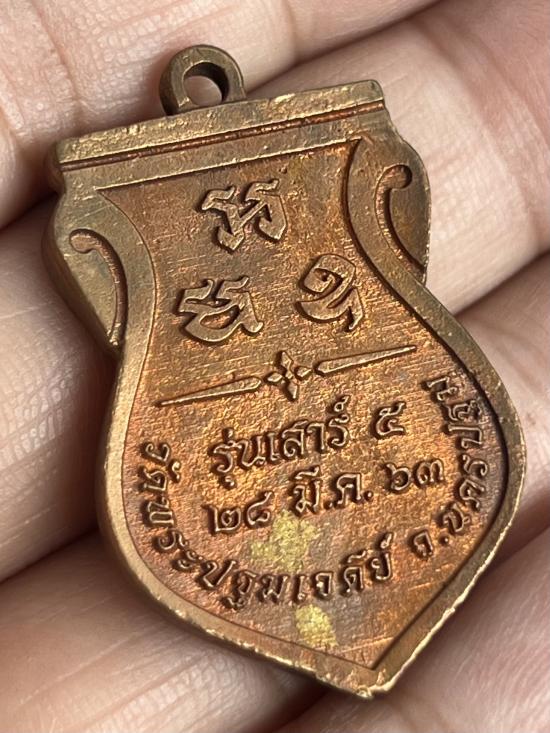 รุ่นเสาร์ ๕
๒๘ มี.ค. ๖๓
วัดพระปฐมเจดีย์ จ.นครปฐม